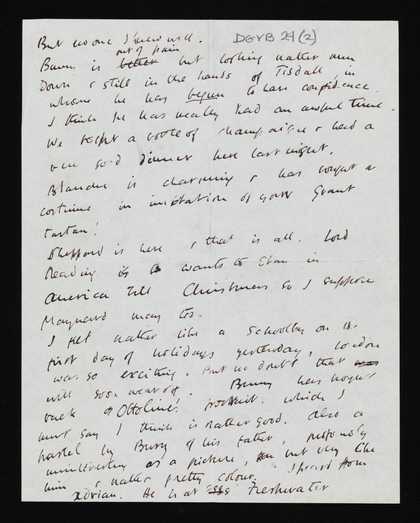 But no one I know well. DGVB 24 (2)
out of pain
Bunny is better but looking rather run
down & still in the hands of Tisdall, in
whom he has begun to have confidence.
I think he has really had an awful time.
We a bottle of champaigne & had a
good dinner here last night.
is charming & has bought a
costume in imitation of your Grant
tartan!
Sheppard is here & that is all. Lord
Reading wants to stay in
America till Christmas so I suppose
Maynard may too.
I felt rather like a schoolboy on the
first day of holidays yesterday, London
was so exciting. But no doubt that
will soon wear off. Bunny has bought
back Ottoline's portrait which I
must say I think is rather good. Also a
pastel by of his father,
as a picture, but very like
him & rather pretty colour. I heard from
Adrian. He is at Freshwater